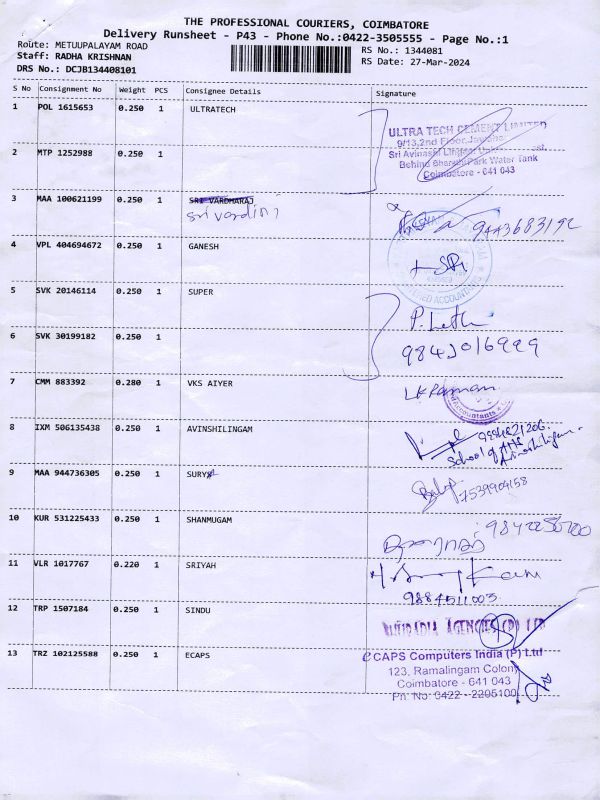 THE PROFESSIONAL COURIERS, COIMBATORE
Delivery Runsheet - P43 - Phone No.:0422-3505555 - Page No.:1
Route: METUUPALAYAM ROAD
Staff: RADHA KRISHNAN
DRS No.: DCJB134408101
RS No.: 1344081
RS Date: 27-Mar-2024
S No Consignment No Weight PCS Consignee Details Signature
1 POL 1615653 0.250 1 ULTRATECH
ULTRA TECH CEMENT LIMITED
9/13,2nd Floor,
Sri Avinashi
Behind Bharathi Park Water Tank
Coimbatore - 641 043
2 MTP 1252988 0.250 1
3 MAA 100621199 0.250 1 SRI VARDHARAJ
9443683192
4 VPL 404694672 0.250 1 GANESH
5 SVK 20146114 0.250 1 SUPER
6 SVK 30199182 0.250 1
7 CMM 883392 0.280 1 VKS AIYER
LK Raman
Accountants
8 IXM 506135438 0.250 1 AVINSHILINGAM
School of
Avinashilingam
9 MAA 944736305 0.250 1 SURYA
7539904158
10 KUR 531225433 0.250 1 SHANMUGAM
11 VLR 1017767 0.220 1 SRIYAH
9884511003
12 TRP 1507184 0.250 1 SINDU
AGENCIES (P) LTD
13 TRZ 102125588 0.250 1 ECAPS
eCAPS Computers India (P) Ltd
123, Ramalingam Colony
Coimbatore - 641 043
Ph: No: 0422 - 2205100